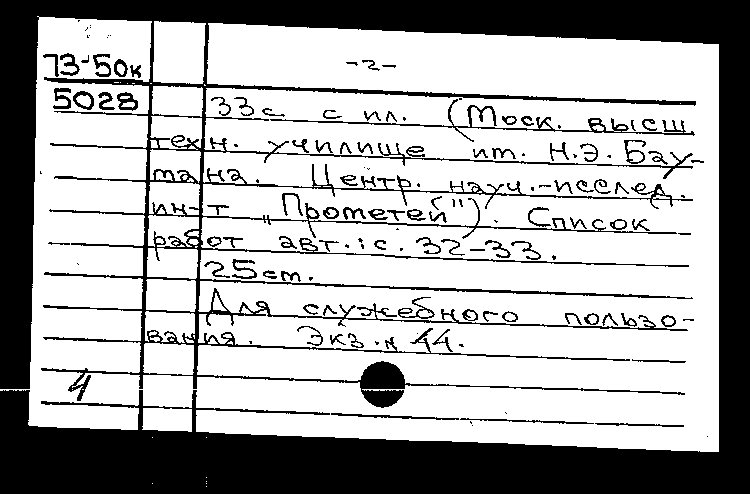 73-50к
-2-
5028
33с с ил. (Моск. высш.
техн. училище им. Н.Э. Бау-
мана. Центр. науч.-исслед.
ин-т "Прометей"). Список
работ авт.: с. 32-33.
25см.
Для служебного пользо-
вания. Экз. № 44.
4